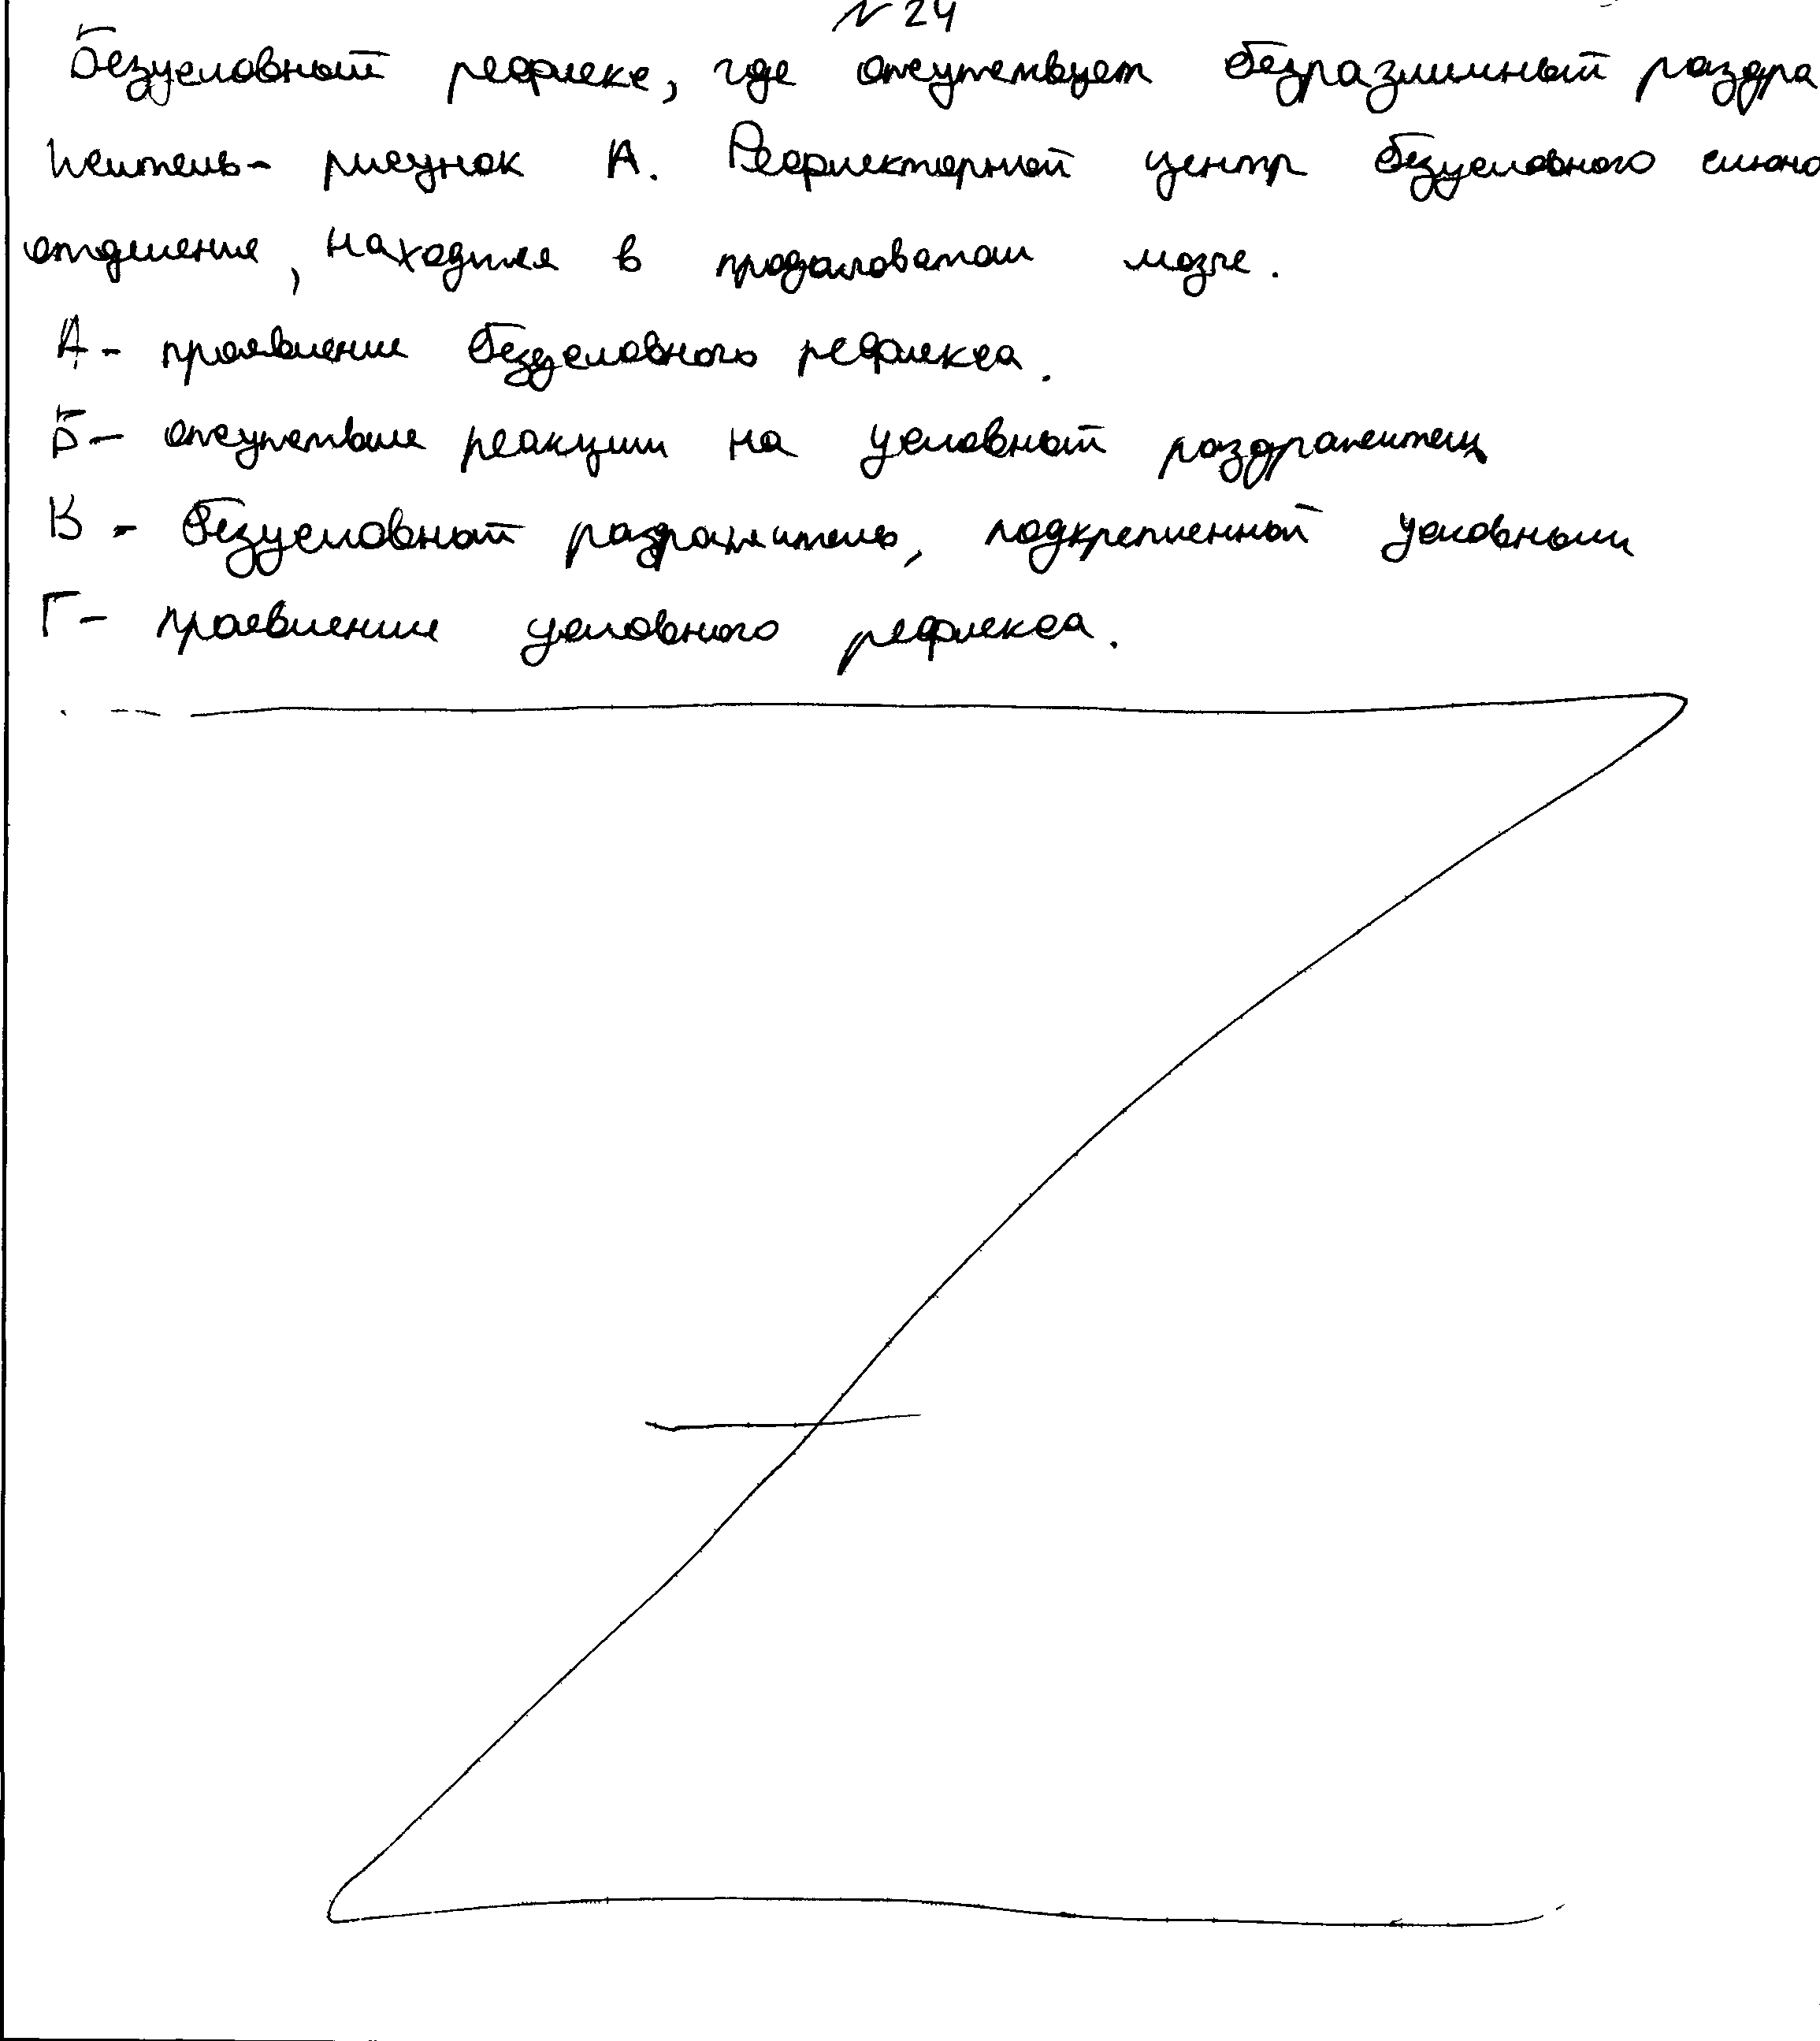 №24
Безусловный рефлекс, где отсутствует безразличный раздра
житель- рисунок А. Рефлекторный центр безусловного слюно
отделения, находится в продолговатом мозге.
А- проявление безусловного рефлекса.
Б- отсутствие реакции на условный раздражитель
В - безусловный раздражитель, подкрепленный условным
Г- проявление условного рефлекса.